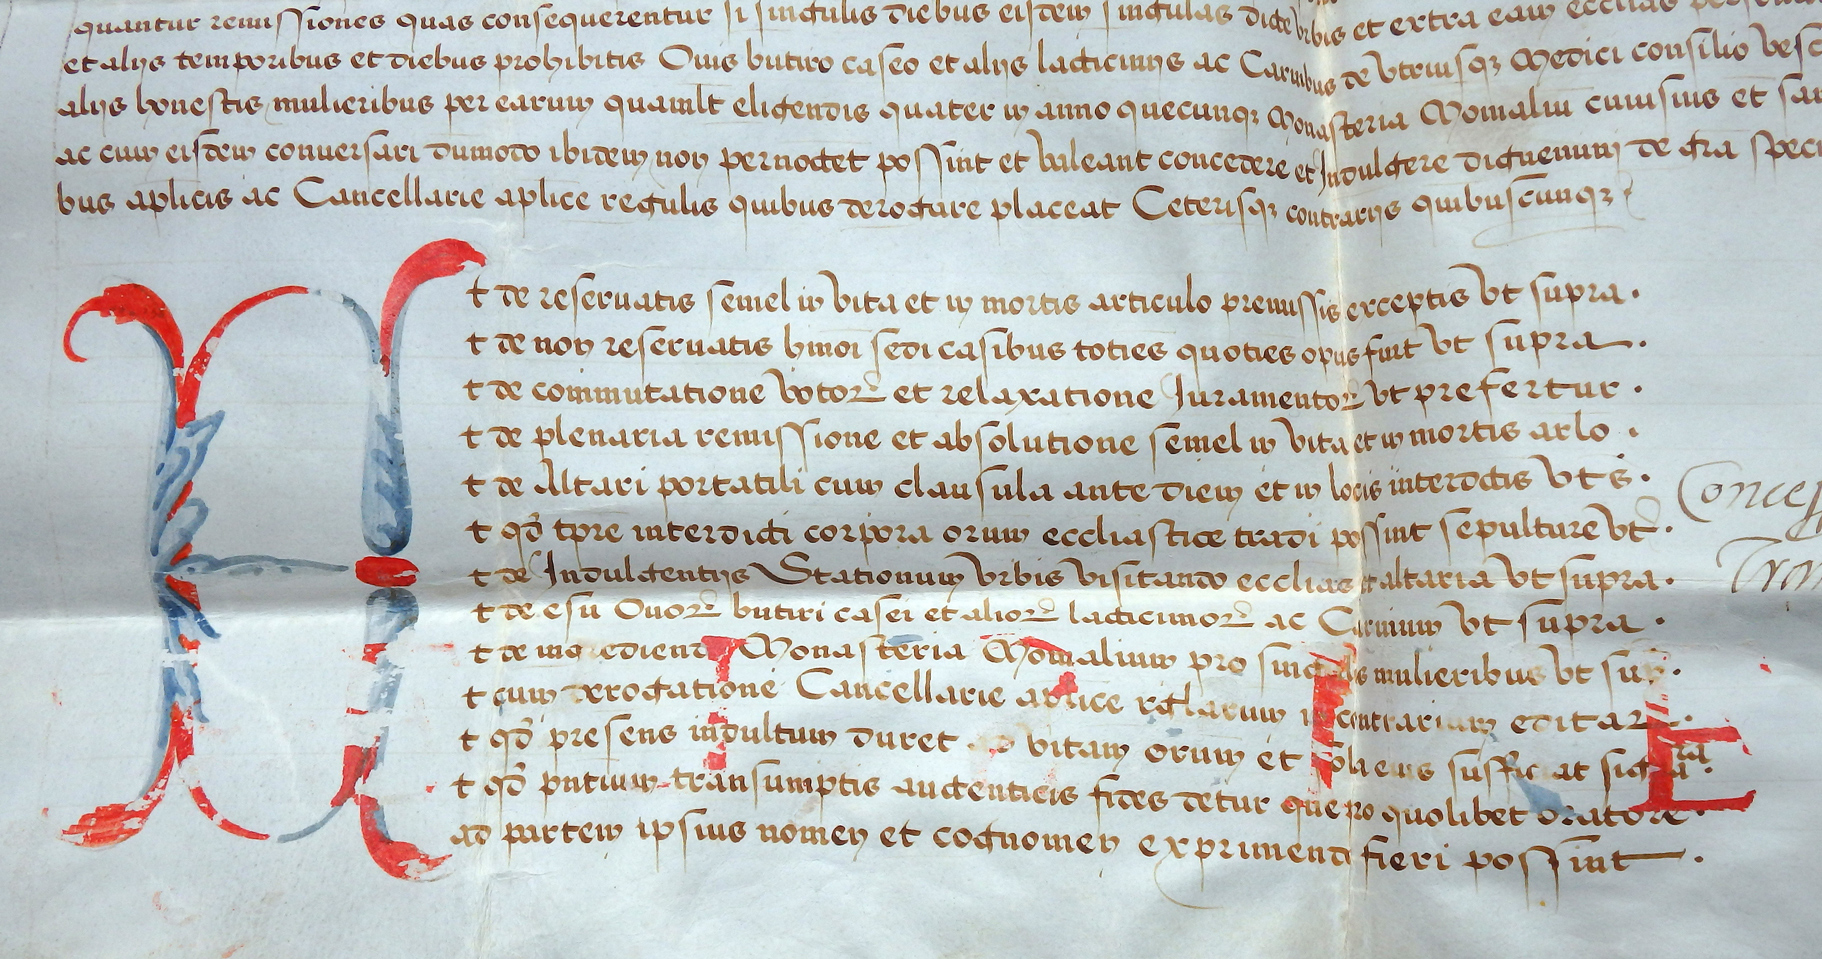 quantur remissiones quas consequerentur si singulis diebus eisdem singulas dicte urbis et extra eam ecclias
et aliis temporibus et diebus prohibitis Ovis butiro caseo et aliis lacticiniis ac Carnibus de utriusq3 Medici consilio vesc
aliis honestis mulieribus per earum quamlt eligendis quater in anno quecunq3 Monasteria Monialiu cuiusuis et
ac cum eisdem conuersari dumodo ibidem non pernoctet possint et valeant concedere et Indulgere dignemini de gra speci
bus aplicis ac Cancellarie aplice regulis quibus derogare placeat Ceterisq3 contrariis quibuscunq3
Et de reseruatis semel in vita et in mortis articulo premissis exceptis vt supra.
t de non reseruatis hmoi sedi casibus toties quoties opus fuit vt supra.
t de commutatione votor et relaxatione Iuramentor vt prefertur.
t de plenaria remissione et absolutione semel in vita et in mortis arlo.
t de Altari portatili cum clausula ante diem et in locis interdictis vt s.
t qd tpre interdicti corpora orum eccliastice tradi possint sepulture vt.
t de Indulgentiis Stationum Urbis visitando ecclias et altaria vt supra.
t de esu Ouor butiri casei et alior lacticinior ac Carnium vt supra.
t de ingrediend Monasteria Monialium pro singulis mulieribus vt sup.
t cum derogatione Cancellarie aplice rglarum in contrarium editar.
t qd presens indultum duret ad vitam orum et sola eius sufficiat sigra.
t qd pntium transumptis autenticis fides detur que pro quolibet oratore.
ad partem ipsius nomen et cognomen expriment fieri possint.
Concess
Tron